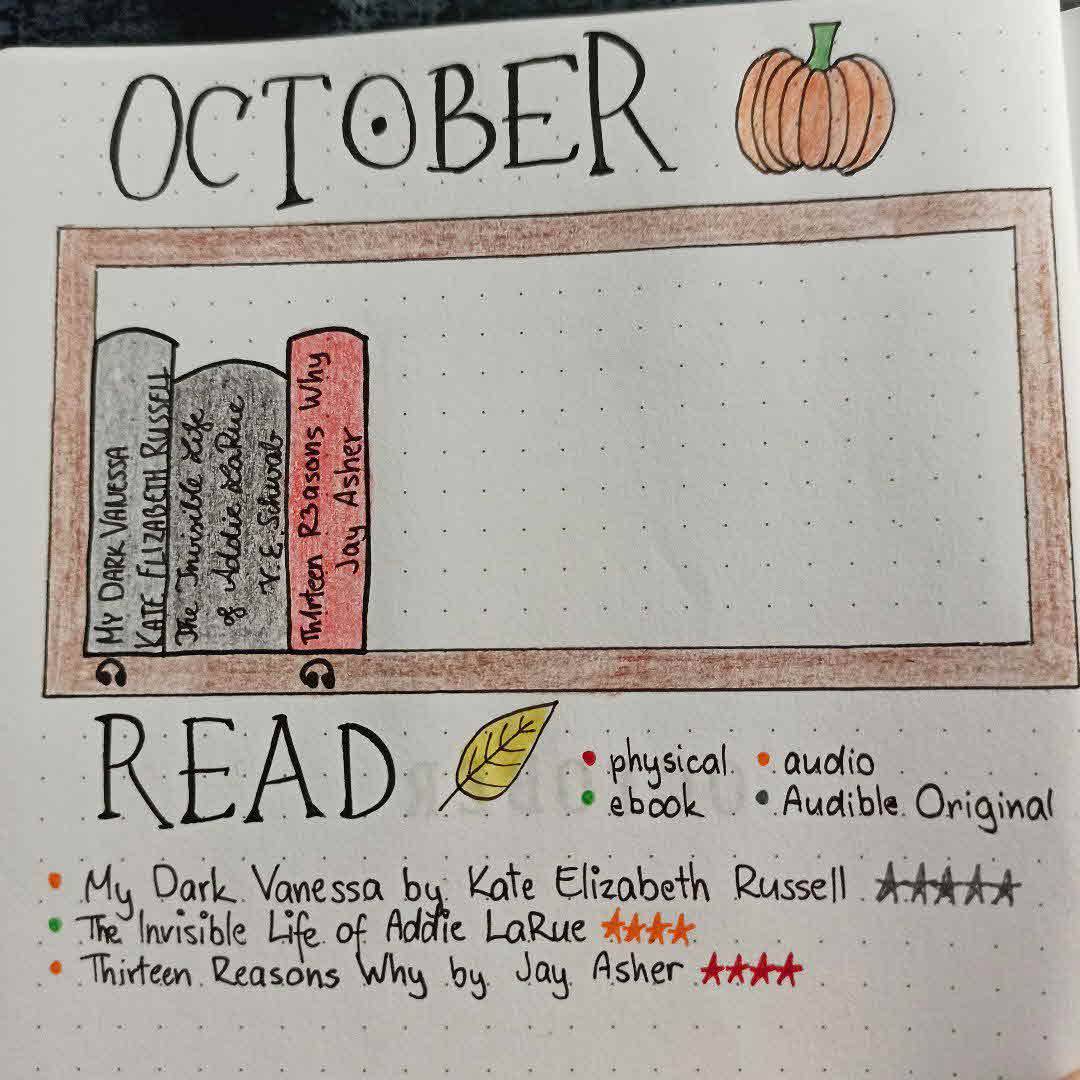 OCTOBER
MY DARK VANESSA
KATE ELIZABETH RUSSELL
The Invisible Life
of Addie LaRue
V. E. Schwab
Th1rteen R3asons Why
Jay Asher
READ
physical
audio
ebook
Audible Original
My Dark Vanessa by Kate Elizabeth Russell ★★★★★
The Invisible Life of Addie LaRue ★★★★
Thirteen Reasons Why by Jay Asher ★★★★